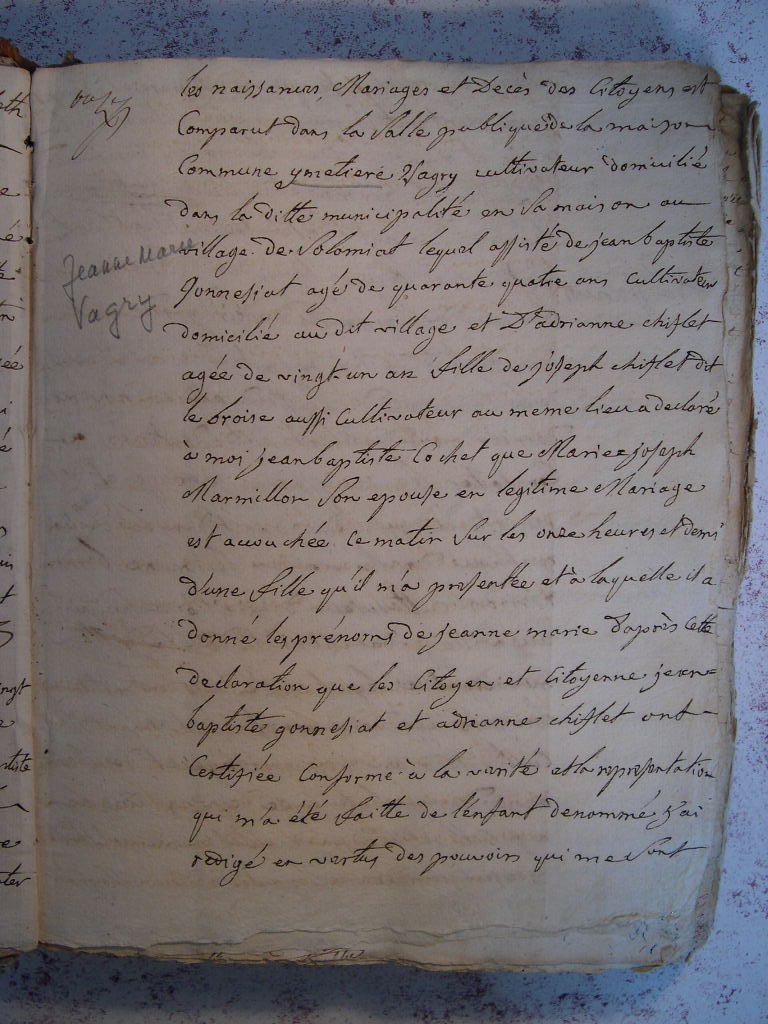 les naissances, Mariages et Decès des Citoyens est
Comparut dans la Salle publique de la maison
Commune ymetiere Vagry cultivateur domicilié
dans la ditte municipalité en Sa maison au
village de Solomiat lequel assisté de jean baptiste
Gonnesiat agé de quarante quatre ans Cultivateur
Jeanne Marie
Vagry
domicilié au dit village et D'adrianne chiflet
agée de vingt un an fille de joseph chiflet dit
le broise aussi Cultivateur au meme lieu a declaré
à moi jean baptiste Cochet que Marie=joseph
Marmillon Son epouse en legitime Mariage
est accouchée Ce matin Sur les onze heures et demi
d'une fille qu'il m'a presentée et à laquelle il a
donné les prénoms de jeanne marie D'après Cette
declaration que les Citoyen et Citoyenne jean=
baptiste gonnesiat et adrianne chiflet ont
Certifiée Conforme à la verité et la representation
qui m'a été faitte de l'enfant denommé j'ai
redigé en vertus des pouvoirs qui me Sont